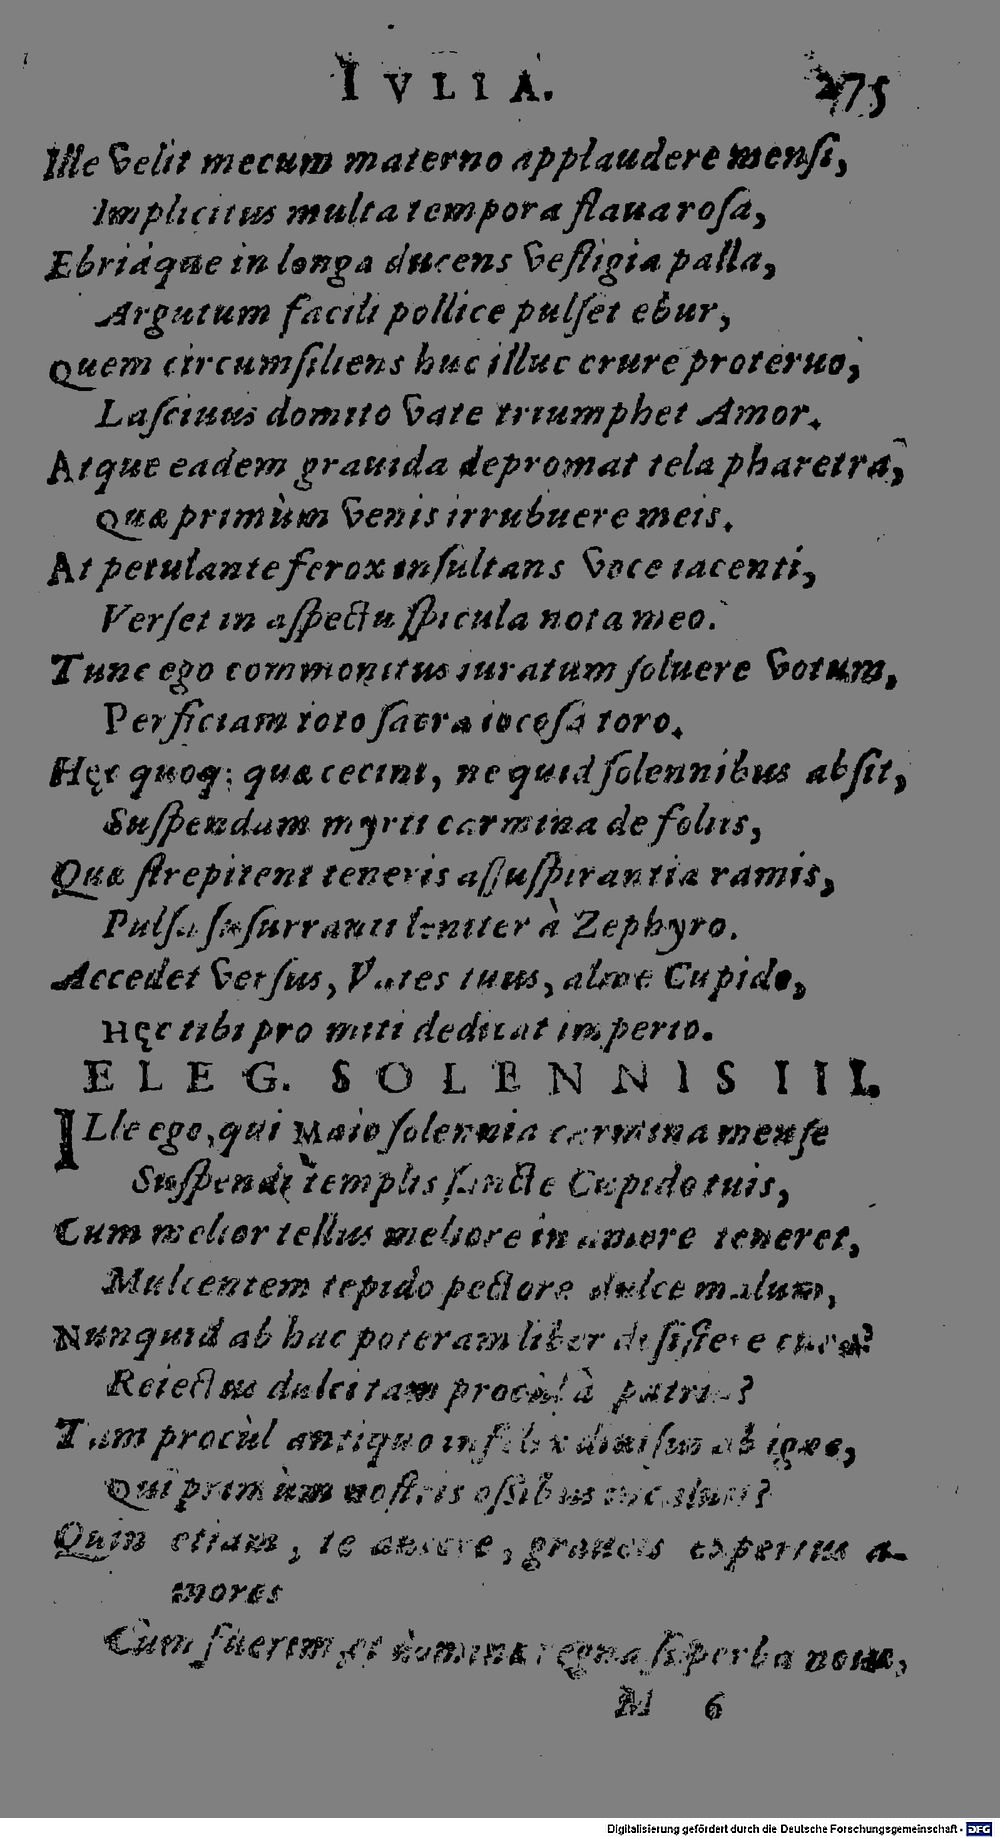 IVLIA. 275
Ille velit mecum materno applaudere mensi,
Implicitus multa tempora flaua rosa,
Ebriáque in longa ducens vestigia palla,
Argutum facili pollice pulset ebur,
Quem circumsiliens huc illuc crure proteruo,
Lasciuus domito vate triumphet Amor.
Atque eadem grauida depromat tela pharetra,
Quæ primùm venis irrubuere meis.
At petulante ferox insultans voce iacenti,
Verset in aspectu spicula nota meo.
Tunc ego commonitus iuratum soluere votum,
Perficiam toto sacra iocosa toro.
Hęc quoq; quæ cecini, ne quid solennibus absit,
Suspendam myrti carmina de foliis,
Quæ strepitent teneris assuspirantia ramis,
Pulsa susurranti leniter à Zephyro.
Accedet versus, Vates tuus, alme Cupido,
Hęc tibi pro miti dedicat imperio.
ELEG. SOLENNIS III.
ILle ego, qui Maio solennia carmina mense
Suspendi templis sancte Cupido tuis,
Cum melior tellus meliore in amore teneret,
Mulcentem tepido pectore dulce malum,
Nunquid ab hac poteram liber desistere cura?
Reiectus dulci tam procùl à patria?
Tam procùl antiquo infelix diuisus ab igne,
Qui primùm nostris ossibus incaluit?
Quin etiam, te auctore, graueis expertus a-
mores
Cùm fuerim, et dominæ regna superba nouæ,
M 6
Digitalisierung gefördert durch die Deutsche Forschungsgemeinschaft - DFG